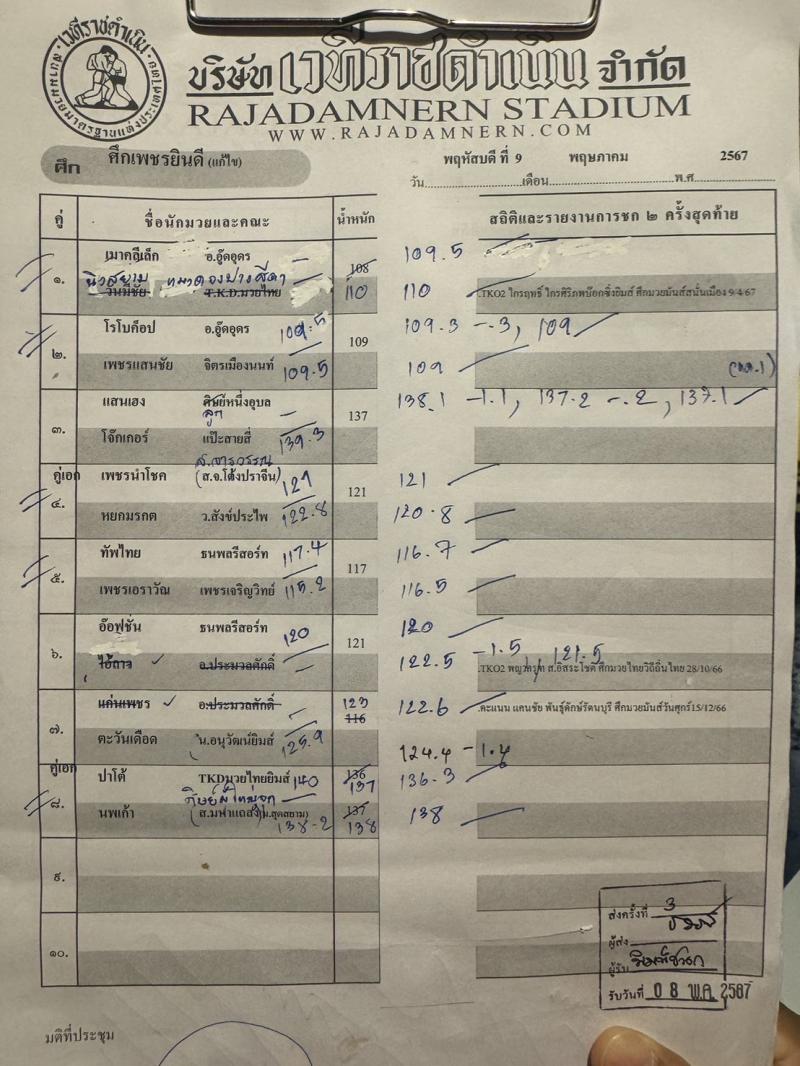 เวทีราชดำเนิน
บริษัท เวทีราชดำเนิน จำกัด
RAJADAMNERN STADIUM
WWW.RAJADAMNERN.COM
ศึก ศึกเพชรยินดี (แก้ไข) พฤหัสบดี ที่ 9 พฤษภาคม 2567
วัน เดือน พ.ศ.
คู่ ชื่อนักมวยและคณะ น้ำหนัก สถิติและรายงานการชก ๒ ครั้งสุดท้าย
เมาคลีเล็ก อ.อู๊ดอุดร 108 109.5
๑. นิวสยาม
วันมีชัย T.K.D.มวยไทย 110 110 .TKO2 ไกรฤทธิ์ ไกรศิริภพบ๊อกซิ่งยิมส์ ศึกมวยมันส์สนั่นเมือง 9/4/67
โรโบค็อป อ.อู๊ดอุดร 109.5 109.3 -.3, 109
๒. 109
เพชรแสนชัย จิตรเมืองนนท์ 109.5 109
แสนเฮง ศิษย์หนึ่งอุบล 138.1 -1.1, 137.2 -.2, 137.1
ลูก
๓. 137
โจ๊กเกอร์ แป๊ะสายสี่ 139.3
ส.จารุวรรณ
คู่เอก เพชรนำโชค (ส.จ.โต้งปราจีน) 121 121
๔. 121
หยกมรกต ว.สังข์ประไพ 122.8 120.8
ทัพไทย ธนพลรีสอร์ท 117.4 116.7
๕. 117
เพชรเอราวัณ เพชรเจริญวิทย์ 115.2 116.5
อ๊อฟชั่น ธนพลรีสอร์ท 120 120
๖. 121
ไอ้ถาจ อ.ประมวลศักดิ์ 122.5 -1.5, 121.5
.TKO2 พญาภูภูท ส.อิสระโชติ ศึกมวยไทยวิถีถิ่นไทย 28/10/66
แก่นเพชร อ.ประมวลศักดิ์ 123 122.6 .คะแนน แคนชัย พันธุ์ศักษ์รัตนบุรี ศึกมวยมันส์วันศุกร์15/12/66
๗. 116
ตะวันเดือด น.อนุวัฒน์ยิมส์ 125.9 124.4 -1.4
คู่เอก ปาโต้ TKDมวยไทยยิมส์ 140 136 137 136.3
๘.
นพเก้า 138.2 137 138 138
๙.
๑๐.
ส่งครั้งที่ 3
ผู้ส่ง
ผู้รับ
รับวันที่ 08 พ.ค. 2567
มติที่ประชุม